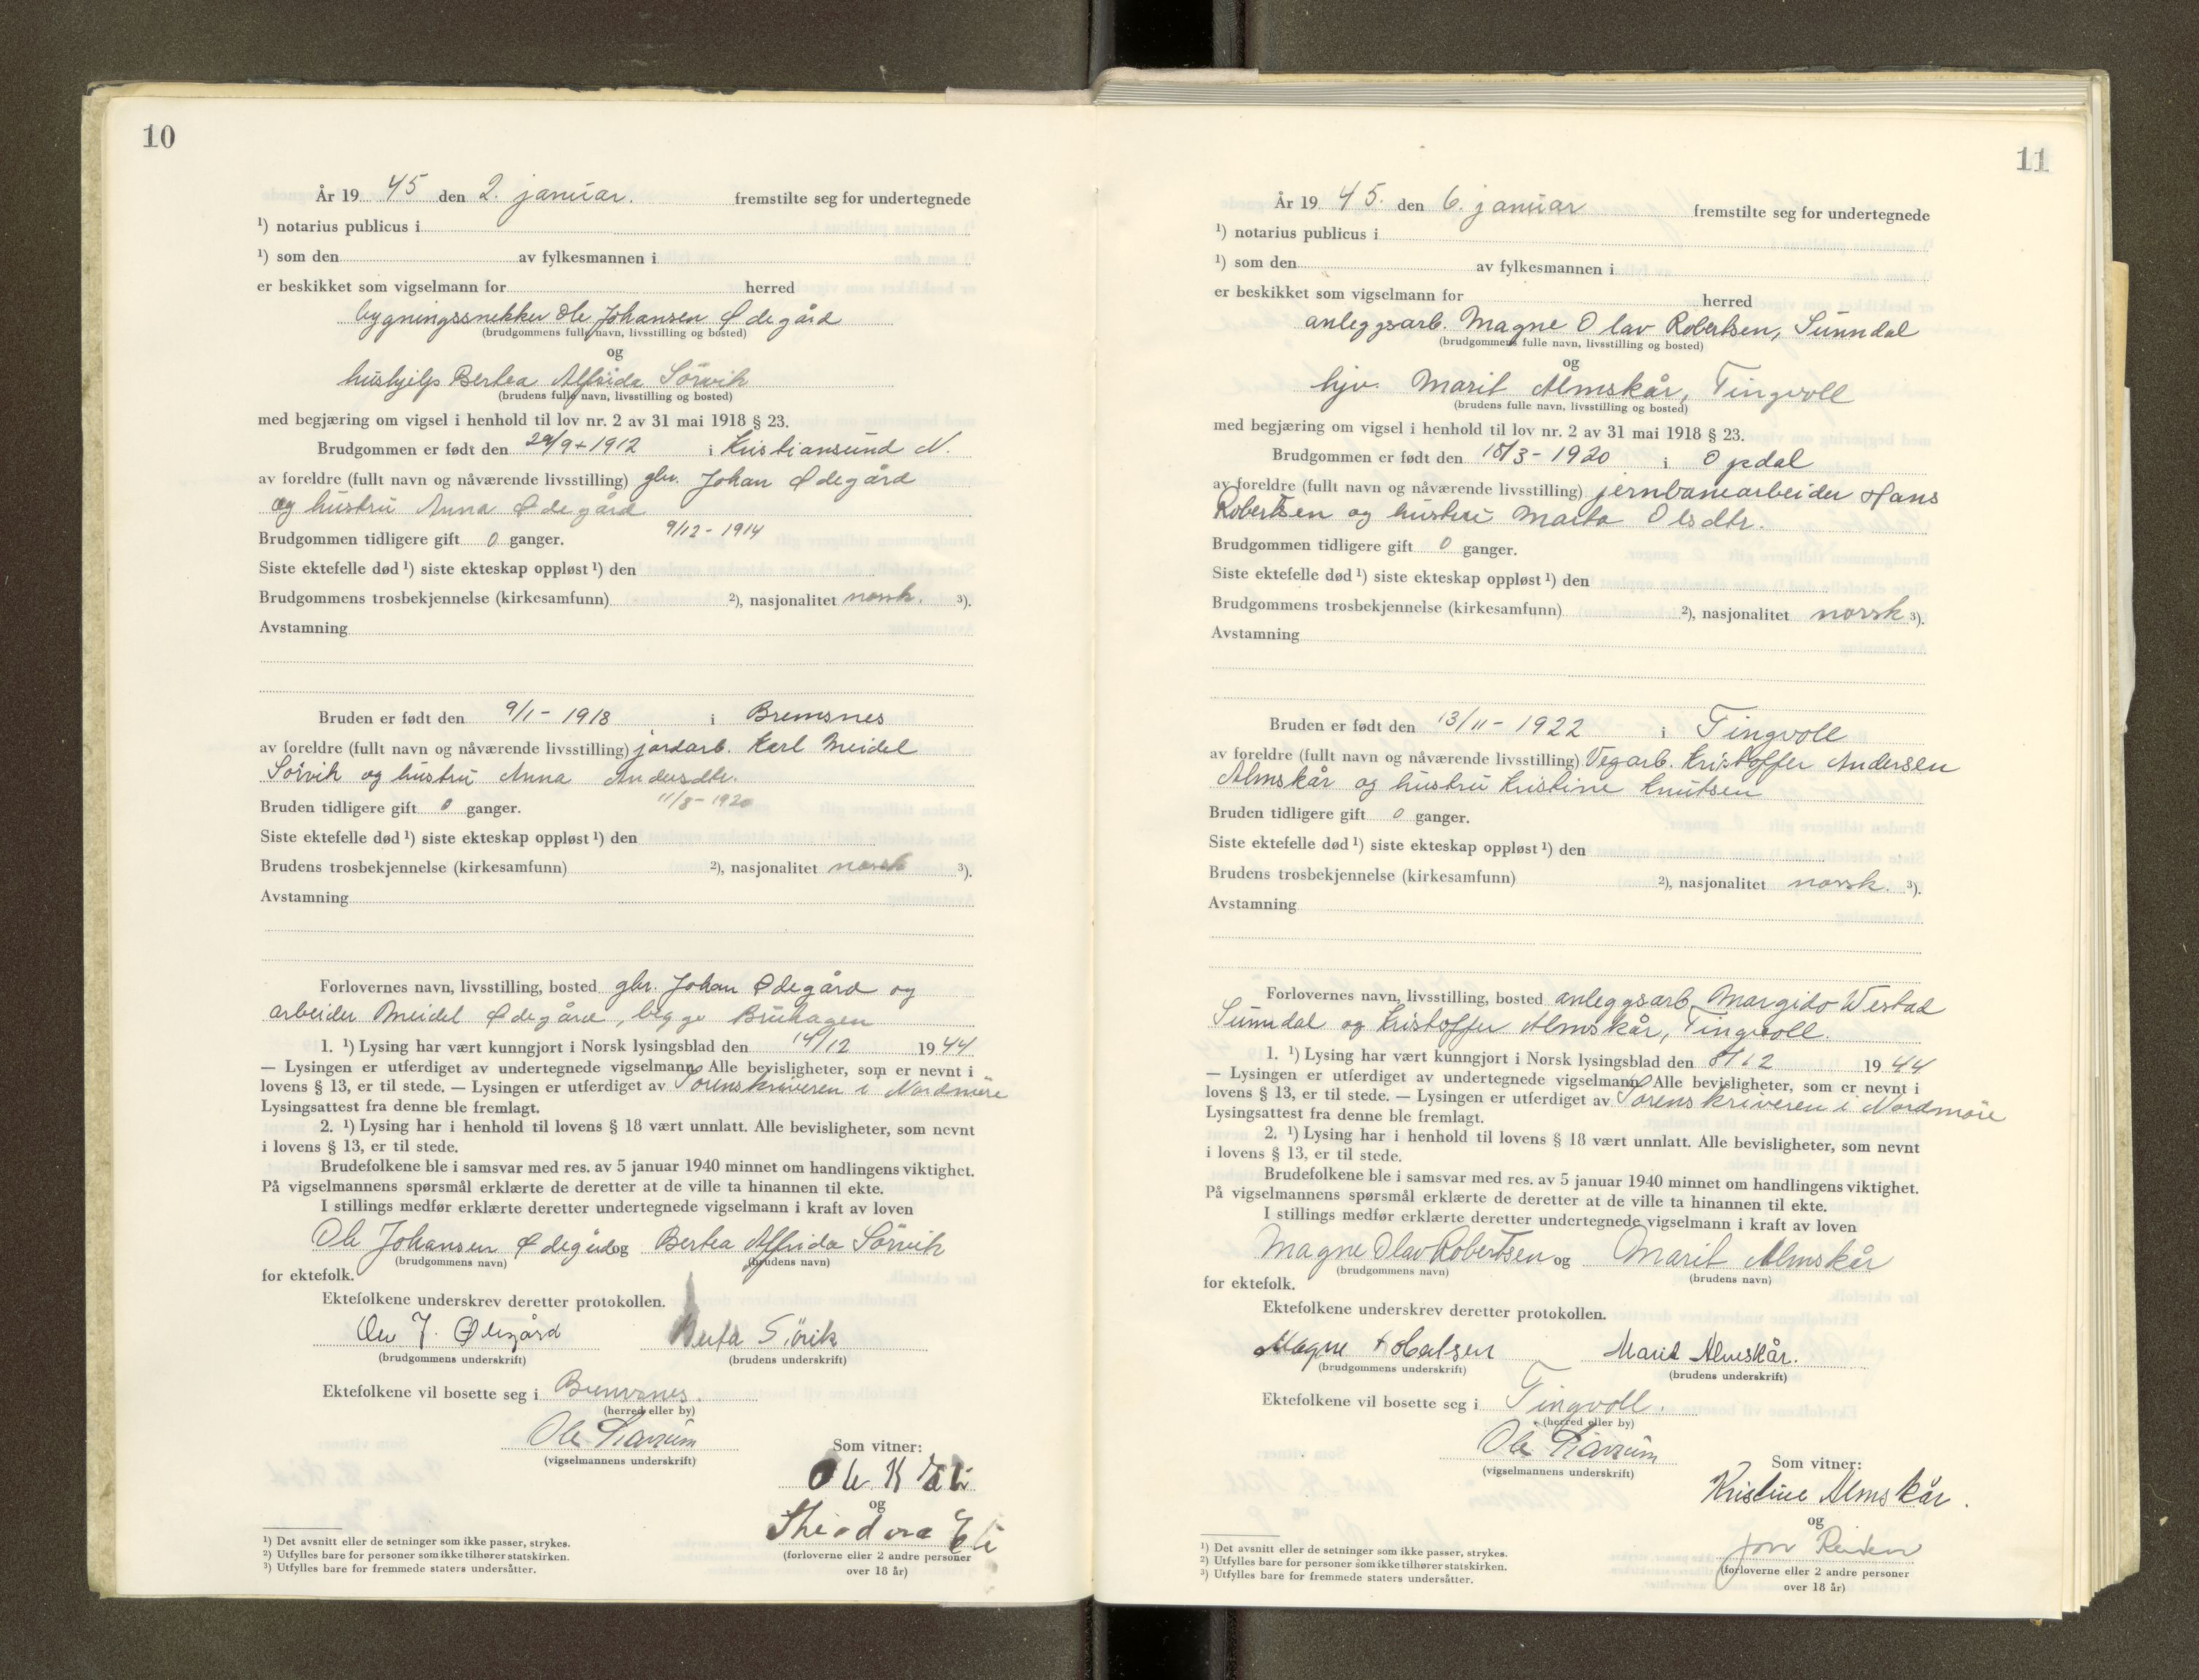 10
År 19 45 den 2. januar. fremstilte seg for undertegnede
¹) notarius publicus i
¹) som den av fylkesmannen i
er beskikket som vigselmann for herred
bygningssnekker Ole Johansen Ødegård
(brudgommens fulle navn, livsstilling og bosted)
og
hushjelp Bertea Alfrida Sörvik
(brudens fulle navn, livsstilling og bosted)
med begjæring om vigsel i henhold til lov nr. 2 av 31 mai 1918 § 23.
Brudgommen er født den 29/9 - 1912 i Kristiansund N.
av foreldre (fullt navn og nåværende livsstilling) gbr. Johan Ødegård
og hustru Anna Ødegård
9/12 - 1914
Brudgommen tidligere gift 0 ganger.
Siste ektefelle død ¹) siste ekteskap oppløst ¹) den
Brudgommens trosbekjennelse (kirkesamfunn) ²), nasjonalitet norsk. ³).
Avstamning
Bruden er født den 9/1 - 1918 i Bremsnes
av foreldre (fullt navn og nåværende livsstilling) jordarb. Karl Meidel
Sörvik og hustru Anna Andersdtr.
11/8 - 1920
Bruden tidligere gift 0 ganger.
Siste ektefelle død ¹) siste ekteskap oppløst ¹) den
Brudens trosbekjennelse (kirkesamfunn) ²), nasjonalitet norsk ³).
Avstamning
Forlovernes navn, livsstilling, bosted gbr. Johan Ødegård og
arbeider Meidel Ødegård, begge Bruhagen
1. ¹) Lysing har vært kunngjort i Norsk lysingsblad den 14/12 19 44
— Lysingen er utferdiget av undertegnede vigselmann. Alle bevisligheter, som er nevnt i
lovens § 13, er til stede. — Lysingen er utferdiget av Sorenskriveren i Nordmöre
Lysingsattest fra denne ble fremlagt.
2. ¹) Lysing har i henhold til lovens § 18 vært unnlatt. Alle bevisligheter, som nevnt
i lovens § 13, er til stede.
Brudefolkene ble i samsvar med res. av 5 januar 1940 minnet om handlingens viktighet.
På vigselmannens spørsmål erklærte de deretter at de ville ta hinannen til ekte.
I stillings medfør erklærte deretter undertegnede vigselmann i kraft av loven
Ole Johansen Ødegård og Bertea Alfrida Sörvik
(brudgommens navn) (brudens navn)
for ektefolk.
Ektefolkene underskrev deretter protokollen.
Ole J. Ødegård Berta Sörvik
(brudgommens underskrift) (brudens underskrift)
Ektefolkene vil bosette seg i Bremsnes.
(herred eller by)
Ole
(vigselmannens underskrift)
Som vitner:
Ole K
og
Theodora
(forloverne eller 2 andre personer
over 18 år)
¹) Det avsnitt eller de setninger som ikke passer, strykes.
²) Utfylles bare for personer som ikke tilhører statskirken.
³) Utfylles bare for fremmede staters undersåtter.
11
År 19 45. den 6. januar fremstilte seg for undertegnede
¹) notarius publicus i
¹) som den av fylkesmannen i
er beskikket som vigselmann for herred
anleggsarb. Magne Olav Robertsen, Sunndal
(brudgommens fulle navn, livsstilling og bosted)
og
hjv. Marit Almskår, Tingvoll
(brudens fulle navn, livsstilling og bosted)
med begjæring om vigsel i henhold til lov nr. 2 av 31 mai 1918 § 23.
Brudgommen er født den 18/3 - 1920 i Opdal
av foreldre (fullt navn og nåværende livsstilling) jernbanearbeider Hans
Robertsen og hustru Marta Olsdtr.
Brudgommen tidligere gift 0 ganger.
Siste ektefelle død ¹) siste ekteskap oppløst ¹) den
Brudgommens trosbekjennelse (kirkesamfunn) ²), nasjonalitet norsk ³).
Avstamning
Bruden er født den 13/11 - 1922 i Tingvoll
av foreldre (fullt navn og nåværende livsstilling) Vegarb. Kristoffer Andersen
Almskår og hustru Kristine Knutsen
Bruden tidligere gift 0 ganger.
Siste ektefelle død ¹) siste ekteskap oppløst ¹) den
Brudens trosbekjennelse (kirkesamfunn) ²), nasjonalitet norsk. ³).
Avstamning
Forlovernes navn, livsstilling, bosted anleggsarb. Margido Westad
Sunndal og Kristoffer Almskår, Tingvoll.
1. ¹) Lysing har vært kunngjort i Norsk lysingsblad den 8/12 19 44
— Lysingen er utferdiget av undertegnede vigselmann. Alle bevisligheter, som er nevnt i
lovens § 13, er til stede. — Lysingen er utferdiget av Sorenskriveren i Nordmöre
Lysingsattest fra denne ble fremlagt.
2. ¹) Lysing har i henhold til lovens § 18 vært unnlatt. Alle bevisligheter, som nevnt
i lovens § 13, er til stede.
Brudefolkene ble i samsvar med res. av 5 januar 1940 minnet om handlingens viktighet.
På vigselmannens spørsmål erklærte de deretter at de ville ta hinannen til ekte.
I stillings medfør erklærte deretter undertegnede vigselmann i kraft av loven
Magne Olav Robertsen og Marit Almskår
(brudgommens navn) (brudens navn)
for ektefolk.
Ektefolkene underskrev deretter protokollen.
Magne Robertsen Marit Almskår.
(brudgommens underskrift) (brudens underskrift)
Ektefolkene vil bosette seg i Tingvoll.
(herred eller by)
Ole
(vigselmannens underskrift)
Som vitner:
Kristine Almskår.
og
Jon
(forloverne eller 2 andre personer
over 18 år)
¹) Det avsnitt eller de setninger som ikke passer, strykes.
²) Utfylles bare for personer som ikke tilhører statskirken.
³) Utfylles bare for fremmede staters undersåtter.